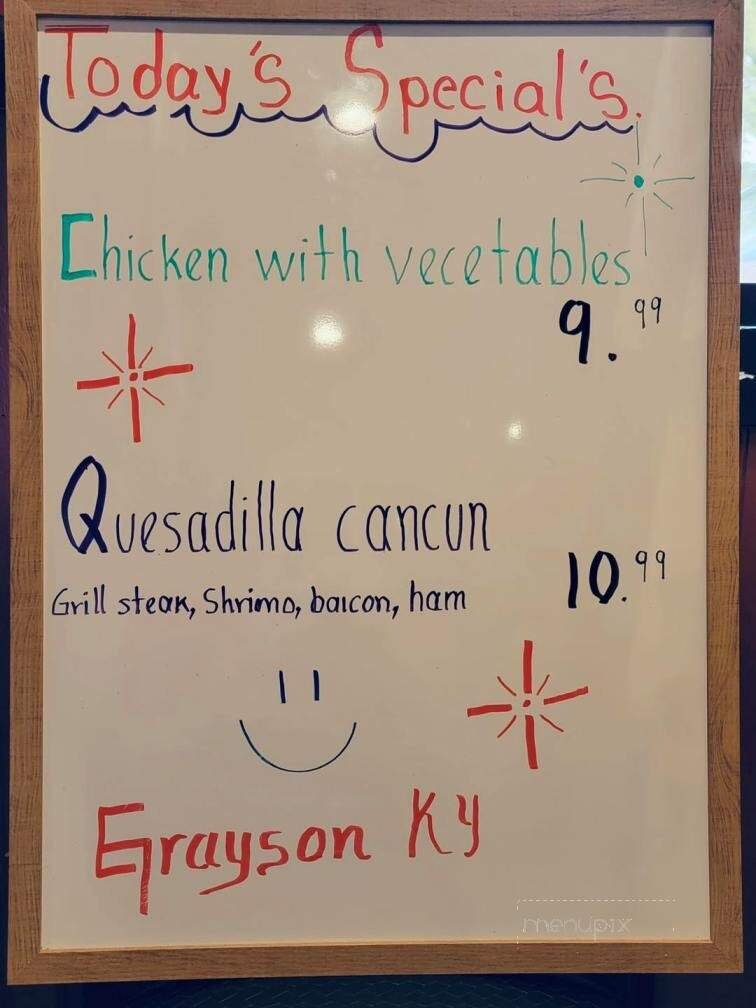 Today's Special's.
Chicken with vecetables
9.99
Quesadilla cancun
10.99
Grill steak, Shrimo, baicon, ham
Grayson KY
menupix